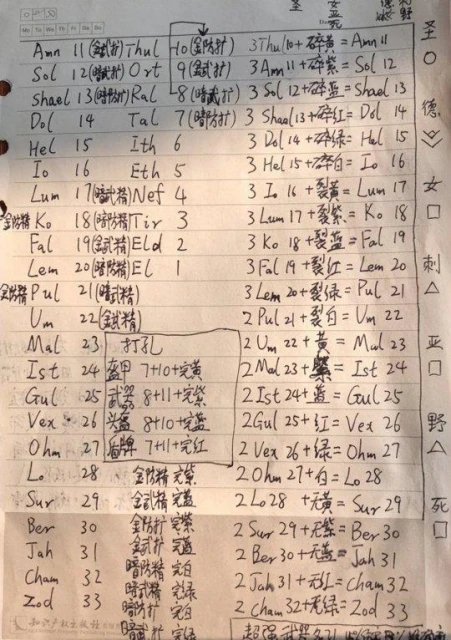 圣 女亚死 德 刺野
Amn 11(金武扩) Thul 10(金防扩) 3Thul10+碎黄=Amn11
Sol 12(暗武扩) Ort 9(金武扩) 3 Amn11+碎紫=Sol 12
Shael 13(暗防扩) Ral 8(暗武扩) 3 Sol 12+碎蓝=Shael 13
Dol 14 Tal 7(暗防扩) 3 Shael 13+碎红=Dol 14
Hel 15 Ith 6 3 Dol 14+碎绿=Hel 15
Io 16 Eth 5 3 Hel 15+碎白=Io 16
Lum 17(暗武精) Nef 4 3 Io 16+裂黄=Lum 17
金防精 Ko 18(暗防精) Tir 3 3 Lum 17+裂紫=Ko 18
Fal 19(金武精) Eld 2 3 Ko 18+裂蓝=Fal 19
Lem 20(暗防精) El 1 3 Fal 19+裂红=Lem 20
金防精 Pul 21(暗武精) 3 Lem 20+裂绿=Pul 21
Um 22(金武精) 2 Pul 21+裂白=Um 22
Mal 23 打孔 2 Um 22+黄=Mal 23
Ist 24 盔甲 7+10+完黄 2 Mal 23+紫=Ist 24
Gul 25 武器 8+11+完紫 2 Ist 24+蓝=Gul 25
Vex 26 头盔 8+10+完蓝 2 Gul 25+红=Vex 26
Ohm 27 盾牌 7+11+完红 2 Vex 26+绿=Ohm 27
Lo 28 金防精 完紫 2 Ohm 27+白=Lo 28
Sur 29 金武精 完蓝 2 Lo 28+无黄=Sur 29
Ber 30 金防扩 完紫 2 Sur 29+无紫=Ber 30
Jah 31 金武扩 完蓝 2 Ber 30+无蓝=Jah 31
Cham 32 暗防精 完白 2 Jah 31+无红=Cham 32
Zod 33 暗武精 完绿 2 Cham 32+无绿=Zod 33
暗防扩 完白
暗武扩 完绿 超强武器
知识产权出版社
圣
○
德
女
□
刺
△
亚
□
野
△
死
□